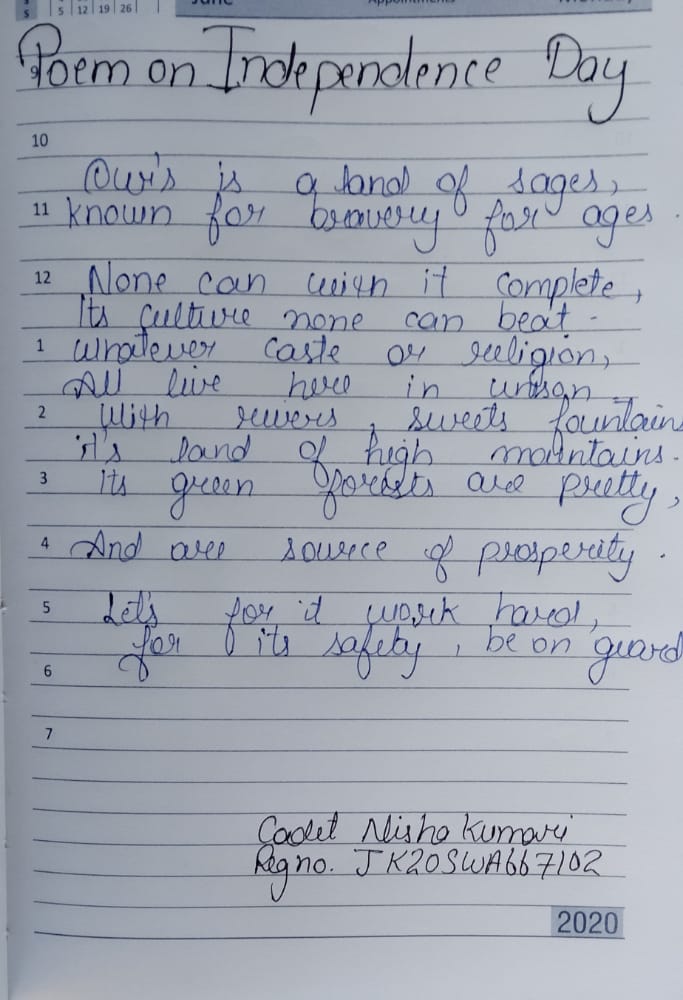 5 12 19 26
Poem on Independence Day
10
Our's is a land of sages,
11 known for bravery for ages.
12 None can with it complete,
Its culture none can beat.
1 Whatever caste or religion,
All live here in unison
2 With rivers, sweets fountain
it's land of high maintains.
3 Its green forests are pretty,
4 And are source of prosperity.
5 Let's for it work hard,
for its safety, be on guard
6
7
Cadet Nisha Kumari
Reg no. JK20SWA667102
2020